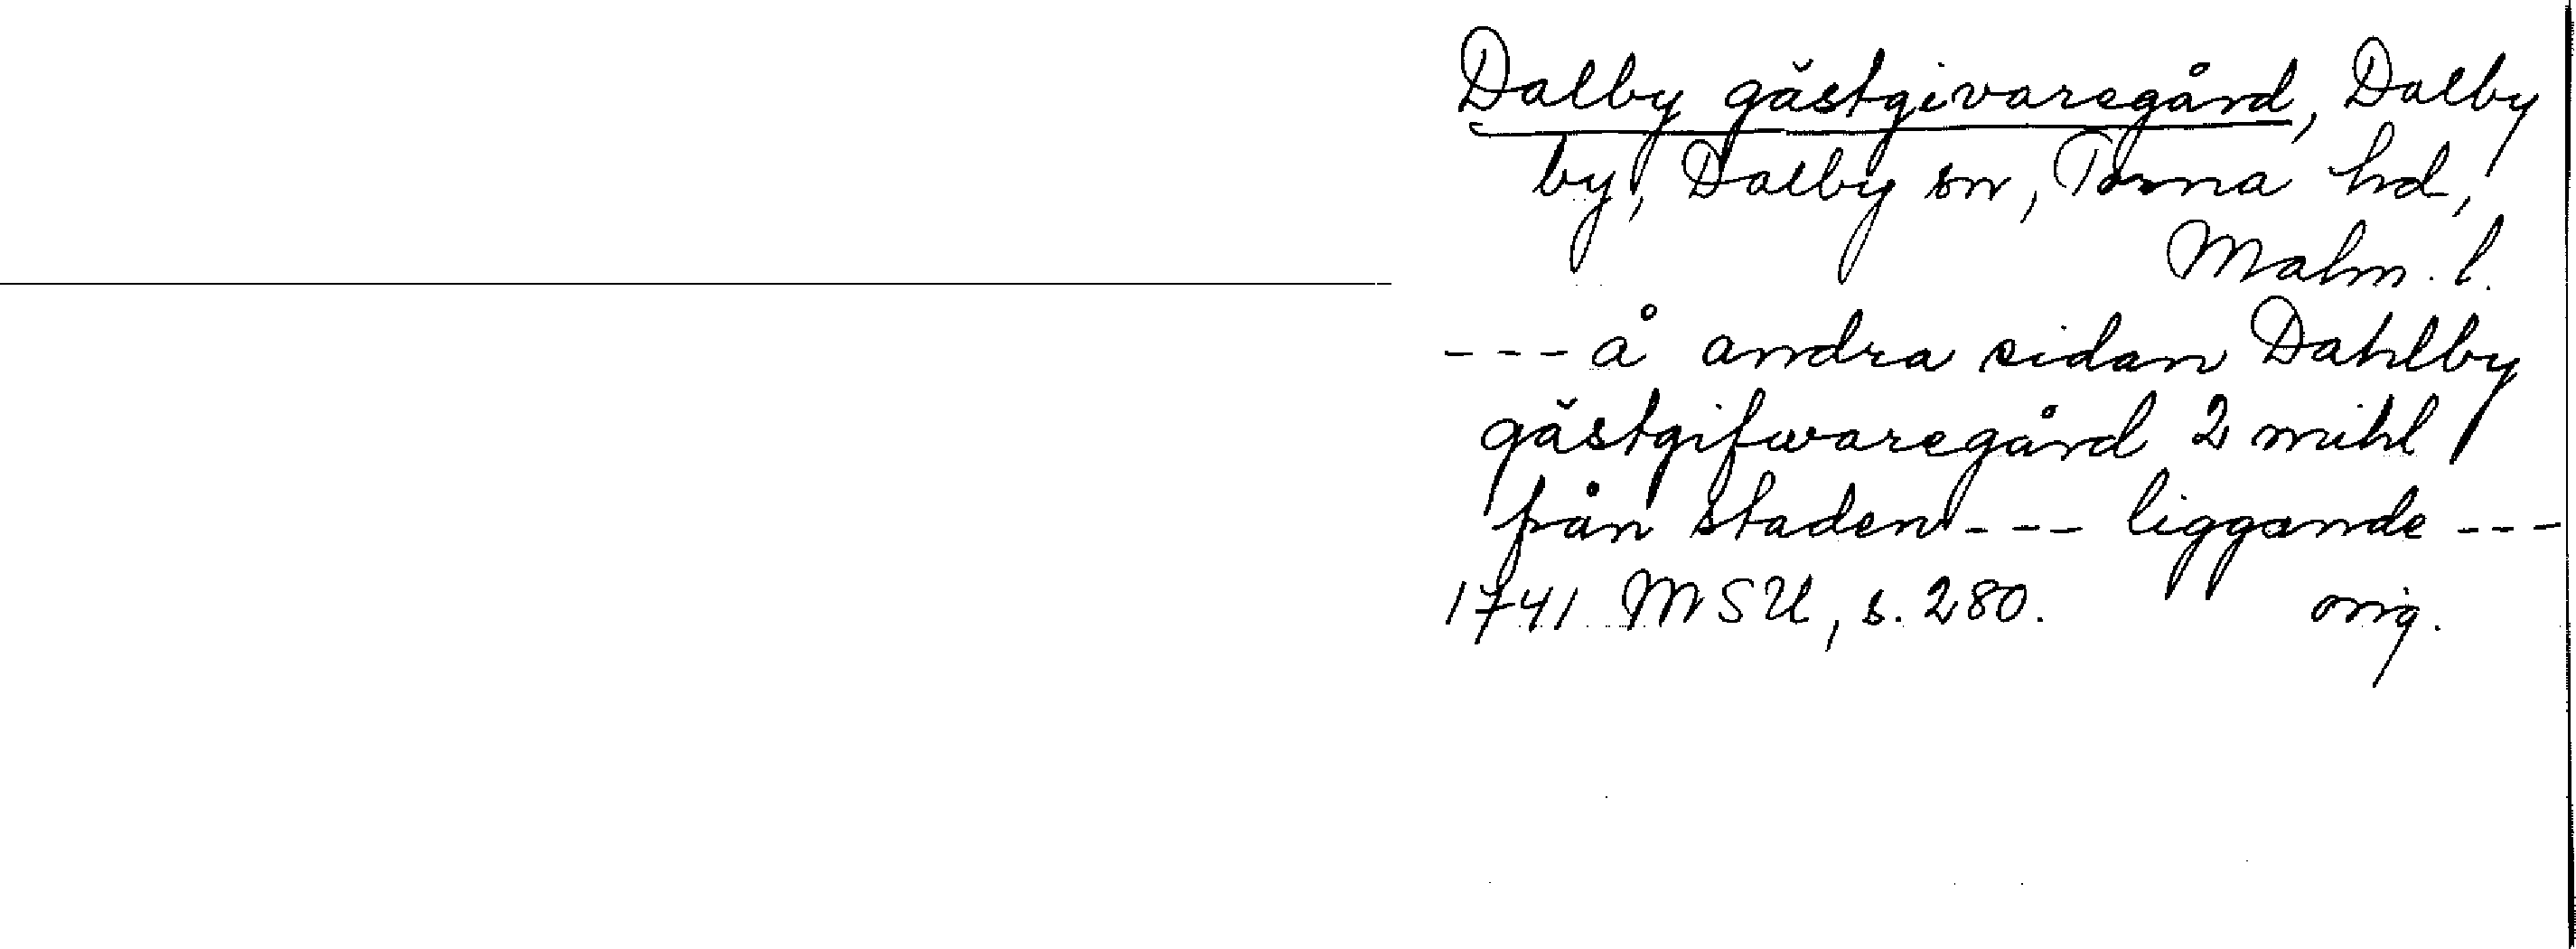 Dalby gästgivaregård, Dalby
by, Dalby sn, Torna hd,
Malm. l.
--- å andra sidan Dahlby
gästgifwaregård 2 mihl
från staden --- liggande ---
1741 MSU, s. 280. orig.